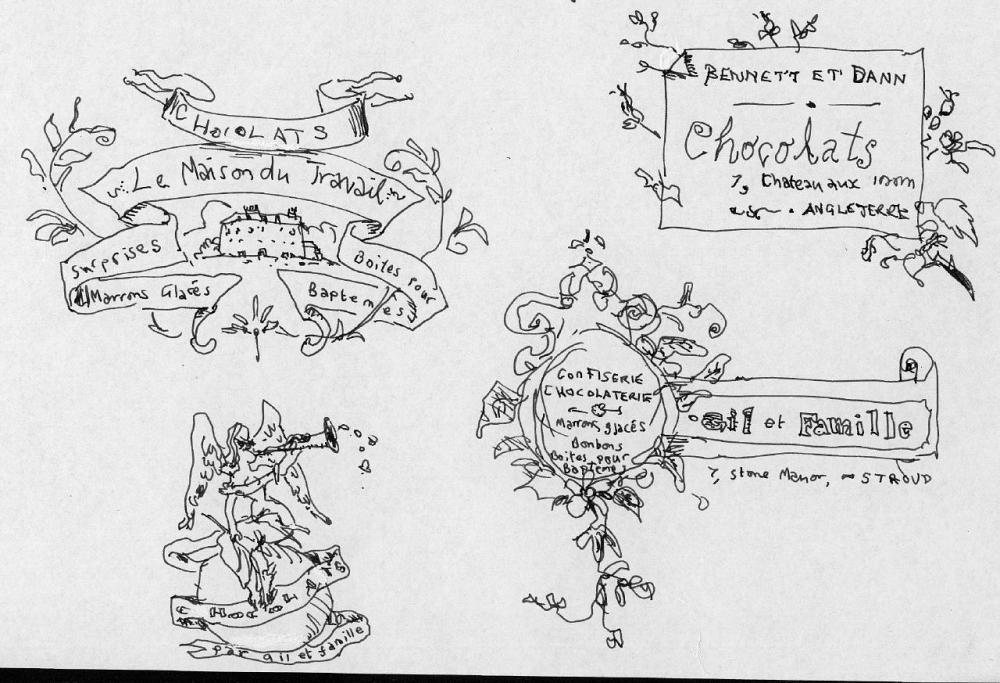 CHOCOLATS
Le Maison du Travail
Surprises
Marrons Glacés
Boites pour
Baptemes
BENNETT ET DANN
Chocolats
7, Chateau aux
ANGLETERRE
CONFISERIE
CHOCOLATERIE
Marrons glacés
Bonbons
Boites pour
Baptemes
Gil et Famille
7, Stone Manor, STROUD
CHOCOLATS
par gil et famille